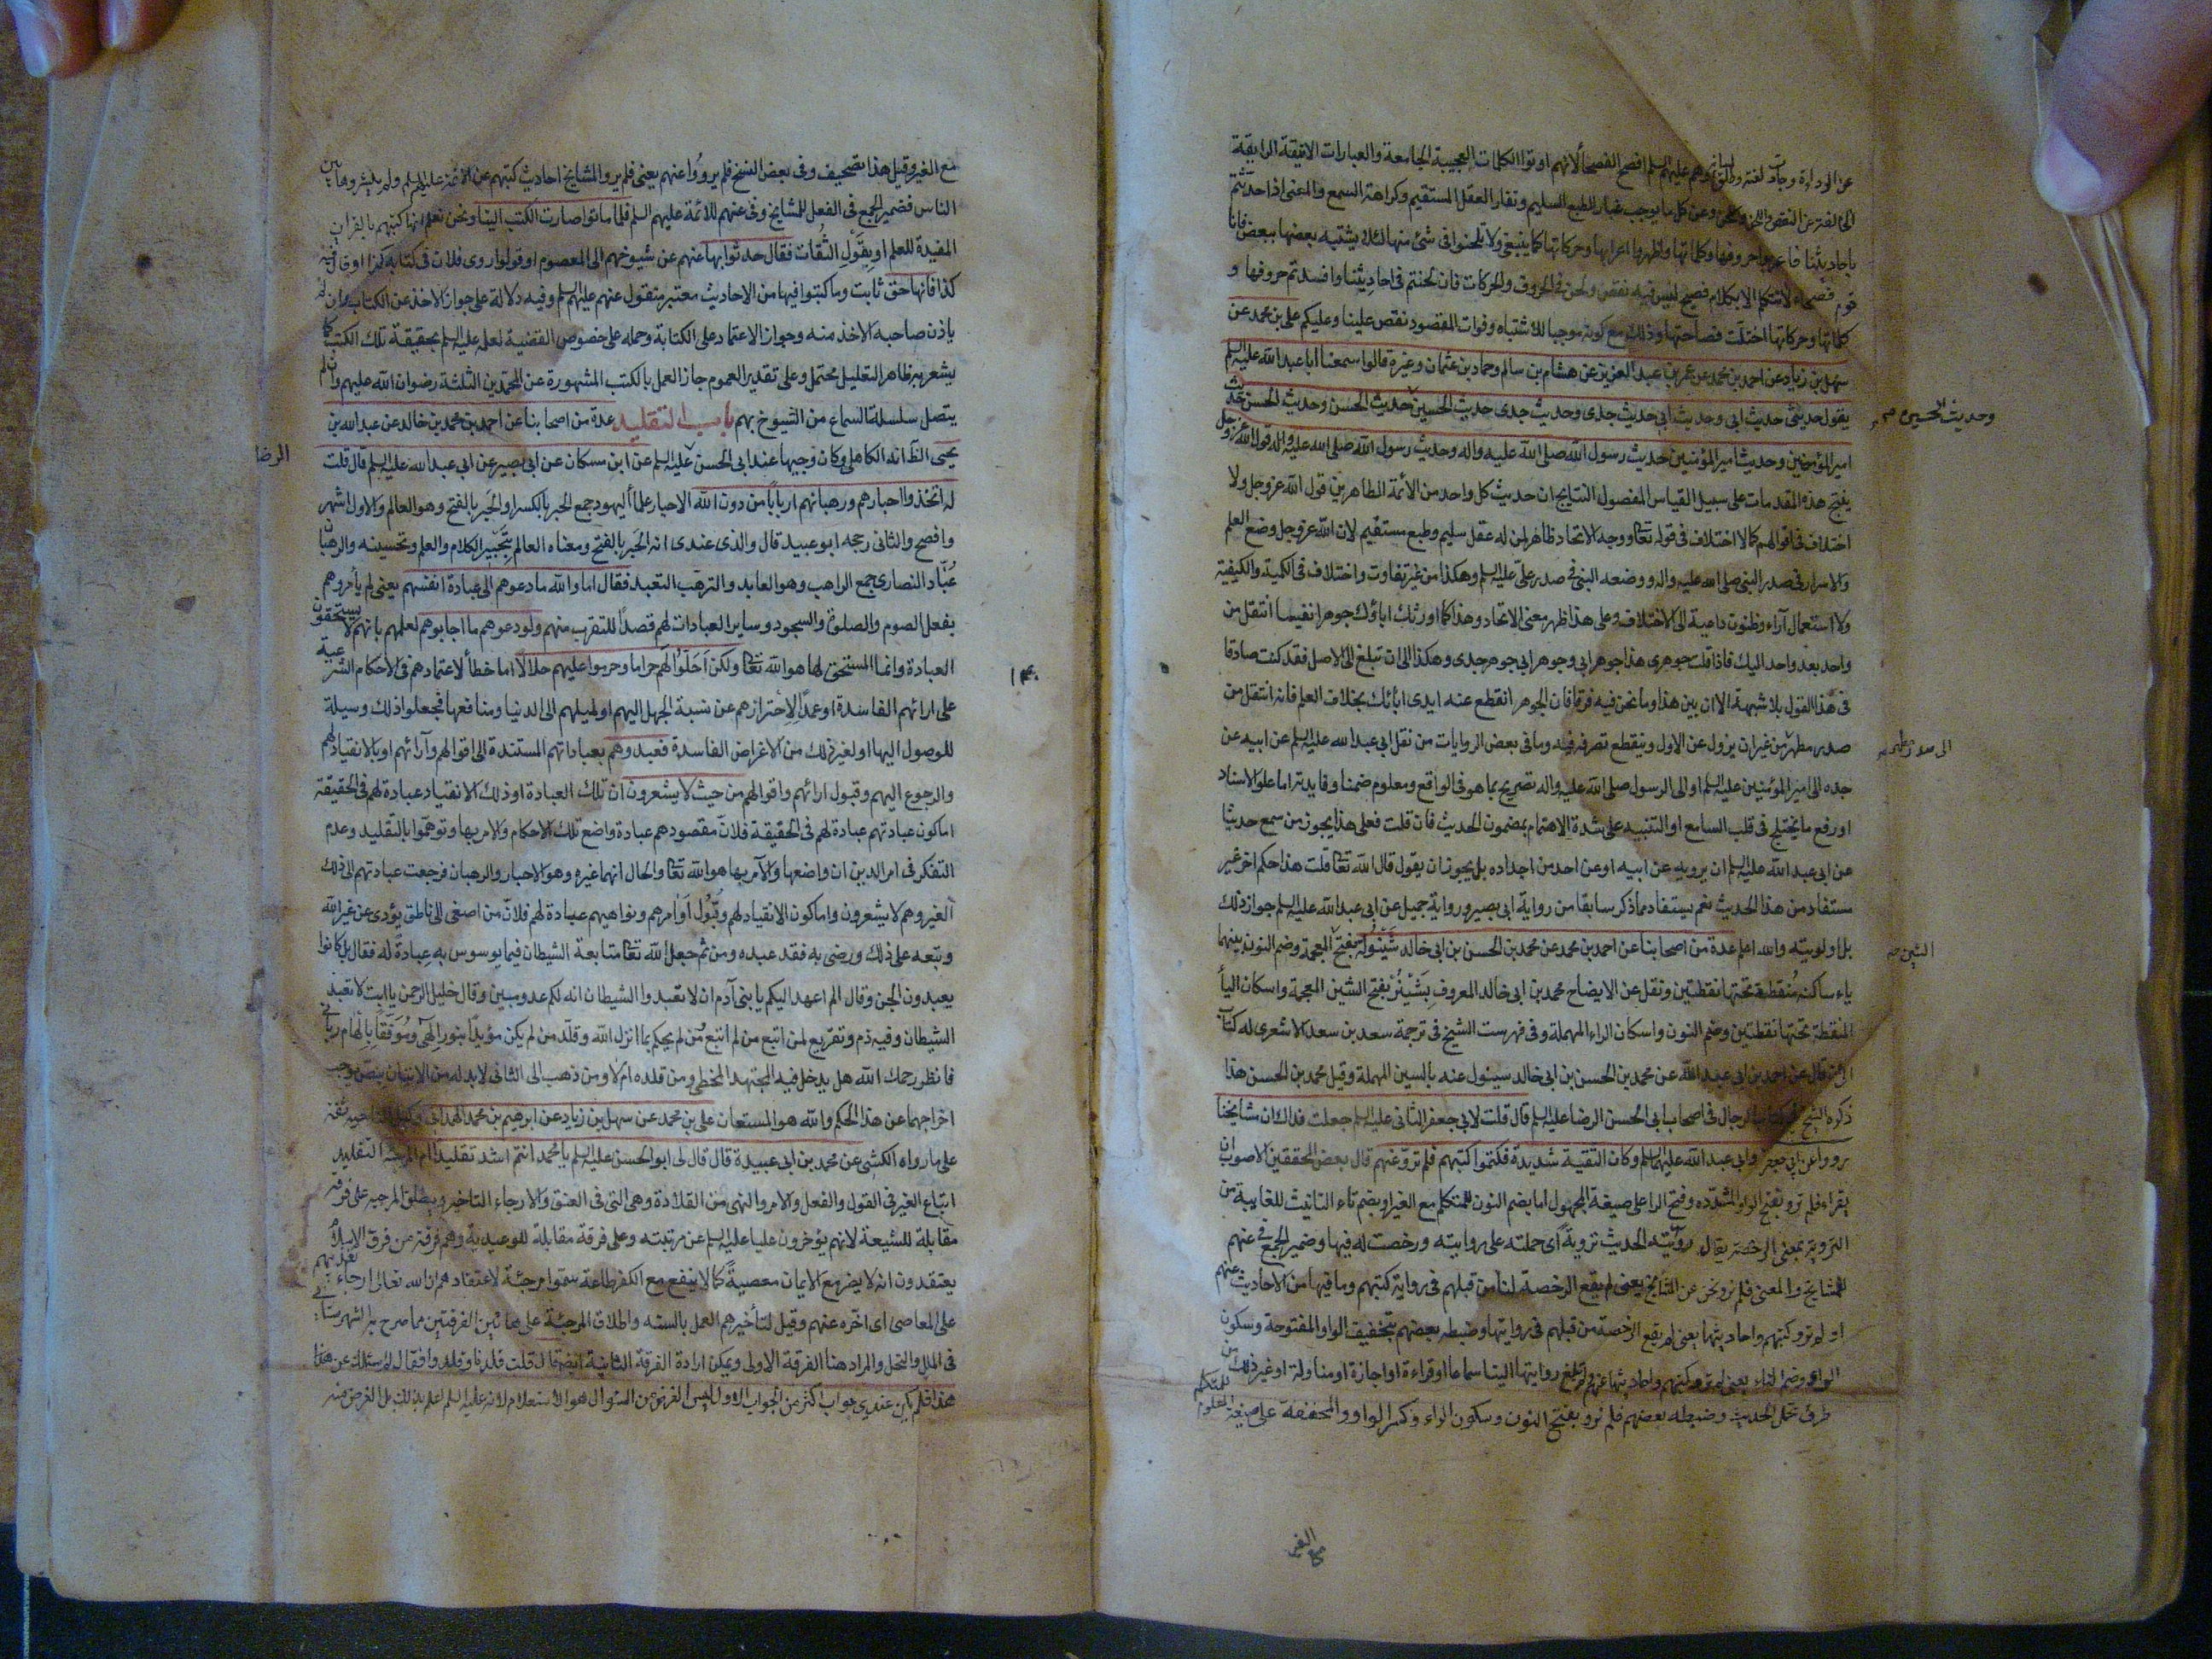 عن الرداءة وجادت لغته وطلق لسانه وهم عليهم السلم افصح الفصحاء لانهم اوتوا الكلمات العجيبة الجامعة والعبارات الانيقة الرايقة
عن النقص واللحن وعن كل ما يوجب غبار الطبع السليم ونفار العقل المستقيم وكراهة السمع والمعنى اذا حدثتم
باحاديثنا فاعربوا حروفها وكلماتها واظهروا اعرابها وحركاتها كما ينبغي ولا تلحنوا في شئ منها لئلا يشتبه بعضها ببعض فانا
قوم فصحاء لا نتكلم الا بكلام فصيح ليس فيه نقص ولحن في الحروف والحركات فان لحنتم في احاديثنا وافسدتم حروفها و
كلماتها وحركاتها اختلت فصاحتها وذلك مع كونه موجبا للاشتباه وفوات المقصود نقص علينا وعليكم علي بن محمد عن
سهل بن زياد عن احمد بن محمد عن عمر بن عبد العزيز عن هشام بن سالم وحماد بن عثمان وغيره قالوا سمعنا ابا عبد الله عليه السلم
يقول حديثي حديث ابي وحديث ابي حديث جدي وحديث جدي حديث الحسين حديث الحسن وحديث الحسن حديث
وحديث الحسين صح
امير المؤمنين وحديث امير المؤمنين حديث رسول الله صلى الله عليه واله وحديث رسول الله صلى الله عليه واله قول الله عز وجل
ينتج هذه المقدمات على سبيل القياس المفصول النتايج ان حديث كل واحد من الائمة الطاهرين قول الله عز وجل ولا
اختلاف في اقوالهم كما لا اختلاف في قوله تعالى ووجه الاتحاد ظاهر لمن له عقل سليم وطبع مستقيم لان الله عز وجل وضع العلم
والاسرار في صدر النبي صلى الله عليه واله ووضعه النبي في صدر علي عليه السلم وهكذا من غير تفاوت واختلاف في الكمية والكيفية
ولا استعمال آراء وظنون داعية الى الاختلاف وعلى هذا ظهر معنى الاتحاد وهذا كما اورثك اباؤك جوهرا نفيسا انتقل من
واحد بعد واحد اليك فاذا قلت جوهري هذا جوهر ابي وجوهر ابي جوهر جدي وهكذا الى ان تبلغ الى الاصل فقد كنت صادقا
في هذا القول بلا شبهة الا ان بين هذا وما نحن فيه فرقا فان الجوهر انقطع عنه ايدي ابائك بخلاف العلم فانه انتقل من
صدر مطهر من غير ان يزول عن الاول وينقطع تصرفه فيه وما في بعض الروايات من نقل ابي عبد الله عليه السلم عن ابيه عن
الى صدر مطهر
جده الى امير المؤمنين عليه السلم او الى الرسول صلى الله عليه واله تصريح بما هو في الواقع ومعلوم ضمنا وفايدته اما علو الاسناد
او رفع ما يختلج في قلب السامع او التنبيه على شدة الاهتمام بمضمون الحديث فان قلت فعلى هذا يجوز من سمع حديثا
عن ابي عبد الله عليه السلم ان يرويه عن ابيه او عن احد من اجداده بل يجوز ان يقول قال الله تعالى قلت هذا حكم اخر غير
مستفاد من هذا الحديث نعم يستفاد مما ذكر سابقا من رواية ابي بصير ورواية جميل عن ابي عبد الله عليه السلم جواز ذلك
بل اولويته والله اعلم عدة من اصحابنا عن احمد بن محمد عن محمد بن الحسن بن ابي خالد شينوله بفتح المعجمة وضم النون بينهما
الشين صح
ياء ساكنه منقطة تحتها نقطتين ونقل عن الايضاح محمد بن ابي خالد المعروف بشينر بفتح الشين المعجمة واسكان الياء
المنقطة تحتها نقطتين وضم النون واسكان الراء المهملة وفي فهرست الشيخ في ترجمة سعد بن سعد الاشعري له كتاب
عن احمد بن ابي عبد الله عن محمد بن الحسن بن ابي خالد سينول عنه بالسين المهملة وقيل محمد بن الحسن هذا
ذكره الشيخ في كتاب الرجال في اصحاب ابي الحسن الرضا عليه السلم قال قلت لابي جعفر الثاني عليه السلم جعلت فداك ان مشايخنا
رووا عن ابي جعفر وابي عبد الله عليهما السلم وكان التقية شديدة فكتموا كتبهم فلم ترو عنهم قال بعض المحققين الاصوب ان
يقراء فلم نرو بفتح الواو المشدده وفتح الرا على صيغة المجهول اما بضم النون للمتكلم مع الغير او بضم تاء التانيث للغايبة من
التروية بمعنى الرخصة يقال رويته الحديث تروية اي حملته على روايته ورخصت له فيها وضمير الجمع في عنهم
للمشايخ والمعنى فلم نرو نحن عن المشايخ يعني لم يقع الرخصة لنا من قبلهم في رواية كتبهم وما فيها من الاحاديث عنهم
او لم ترو كتبهم واحاديثها يعني لم يقع الرخصة من قبلهم في روايتها وضبطه بعضهم بتخفيف الواو المفتوحة وسكون
الراء وضم التاء يعني لم ترو كتبهم واحاديثها عنهم ولم تبلغ روايتها الينا سماعا او قراءة او اجازة او مناولة او غير ذلك من
طرق تحمل الحديث وضبطه بعضهم فلم نرو بفتح النون وسكون الراء وكسر الواو المخففة على صيغة المعلوم للمتكلم
مع الغير
مع الغير وقيل هذا تصحيف وفي بعض النسخ فلم يرووا عنهم يعني فلم يرو المشايخ احاديث كتبهم عن الائمة عليهم السلم ولم ينشروها بين
الناس فضمير الجمع في الفعل للمشايخ وفي عنهم للائمة عليهم السلم فلما ماتوا صارت الكتب الينا ونحن نعلم انها كتبهم بالقراين
المفيدة للعلم او بقول الثقات فقال حدثوا بها عنهم عن شيوخهم الى المعصوم او قولوا روى فلان في كتابه كذا او قال فيه
كذا فانها حق ثابت وما كتبوا فيها من الاحاديث معتبر منقول عنهم عليهم السلم وفيه دلالة على جواز الاخذ عن الكتاب وان لم
ياذن صاحبه الاخذ منه وجواز الاعتماد على الكتابة وحمله على خصوص القضية لعلمه عليه السلم بحقيقة تلك الكتب كما
يشعر به ظاهر التعليل محتمل وعلى تقدير العموم جاز العمل بالكتب المشهورة عن المحمدين الثلثة رضوان الله عليهم وان لم
يتصل سلسلة السماع من الشيوخ بهم باب التقليد عدة من اصحابنا عن احمد بن محمد بن خالد عن عبد الله بن
يحيى الظ انه الكاهلي وكان وجيها عند ابي الحسن عليه السلم عن ابن مسكان عن ابي بصير عن ابي عبد الله عليه السلم قال قلت
الرضا
له اتخذوا احبارهم ورهبانهم اربابا من دون الله الاحبار علماء اليهود جمع الحبر بالكسر او الحبر بالفتح وهو العالم والاول اشهر
وافصح والثاني رجحه ابو عبيد قال والذي عندي انه الحبر بالفتح ومعناه العالم بتحبير الكلام والعلم وتحسينه والرهبان
عباد النصارى جمع الراهب وهو العابد والترهب التعبد فقال اما والله ما دعوهم الى عبادة انفسهم يعني لم يأمروهم
بفعل الصوم والصلوة والسجود وساير العبادات لهم قصدا للتقرب منهم ولو دعوهم ما اجابوهم لعلمهم بانهم لا يستحقون
العبادة وانما المستحق لها هو الله تعالى ولكن احلوا لهم حراما وحرموا عليهم حلالا اما خطأ لاعتمادهم في الاحكام الشرعية
على ارائهم الفاسدة او عمدا لاحترازهم عن نسبة الجهل اليهم او لميلهم الى الدنيا ومنافعها فجعلوا ذلك وسيلة
للوصول اليها او لغير ذلك من الاغراض الفاسدة فعبدوهم بعباداتهم المستندة الى اقوالهم وآرائهم او بالانقياد لهم
والرجوع اليهم وقبول ارائهم واقوالهم من حيث لا يشعرون ان تلك العبادة او ذلك الانقياد عبادة لهم في الحقيقة
اما كون عبادتهم عبادة لهم في الحقيقة فلان مقصودهم عبادة واضع تلك الاحكام والامر بها وتوهموا بالتقليد وعدم
التفكر في امر الدين ان واضعها والآمر بها هو الله تعالى والحال انهما غيره وهو الاحبار والرهبان فرجعت عبادتهم الى ذلك
الغير وهم لا يشعرون واما كون الانقياد لهم وقبول اوامرهم ونواهيهم عبادة لهم فلان من اصغى الى ناطق يؤدى عن غير الله
وتبعه على ذلك ورضي به فقد عبده ومن ثم جعل الله تعالى متابعة الشيطان فيما يوسوس به عبادة له فقال بل كانوا
يعبدون الجن وقال الم اعهد اليكم يا بني آدم ان لا تعبدوا الشيطان انه لكم عدو مبين وقال خليل الرحمن يا ابت لا تعبد
الشيطان وفيه ذم وتقريع لمن اتبع من لم يحكم بما انزل الله وقلد من لم يكن مؤيدا بنور الهي وموفقا بالهام رباني
فانظر رحمك الله هل يدخل فيه المجتهد المخطي ومن قلده ام لا ومن ذهب الى الثاني لابد له من الاتيان بنص يوجب
اخراجهما عن هذا الحكم والله هو المستعان علي بن محمد عن سهل بن زياد عن ابرهيم بن محمد الهمداني وكيل الناحية ثقة
على ما رواه الكشي عن محمد بن ابي عبيدة قال قال لي ابو الحسن عليه السلم يا محمد انتم اشد تقليدا ام المرجئة التقليد
اتباع الغير في القول والفعل والامر والنهي من القلادة وهي التي في العنق والارجاء التاخير ويطلق المرجيه على فرقة
مقابلة للشيعة لانهم يؤخرون عليا عليه السلم عن مرتبته وعلى فرقة مقابلة للوعيدية وهم فرقة من فرق الاسلام
يعتقدون انه لا يضر مع الايمان معصية كما لا ينفع مع الكفر طاعة سموا مرجئة لاعتقادهم ان الله تعالى ارجاء تعذيبهم
على المعاصي اي اخره عنهم وقيل لتأخيرهم العمل بالسنه واطلاق المرجئة على هاتين الفرقتين مما صرح به الشهرستاني
في الملل والنحل والمراد هنا الفرقة الاولى ويمكن ارادة الفرقة الثانية ايضا قال قلت قلدنا وقلدوا فقال لم اسئلك عن هذا
فلم يكن عندي جواب اكثر من الجواب الاول ليس الغرض من السؤال هو الاستعلام لانه عليه السلم اعلم بذلك بل الغرض منه
۱۴۰